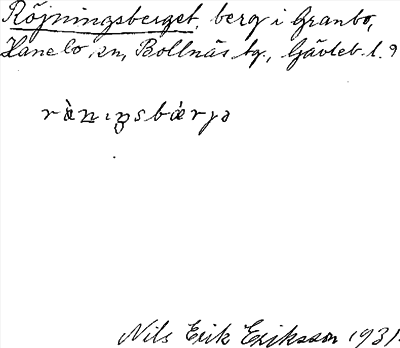 Röjningsberget, berg i Granbo,
Hanebo sn, Bollnäs tg., Gävleb. l.
rànɩŋsbærjə
Nils Erik Eriksson 1931.